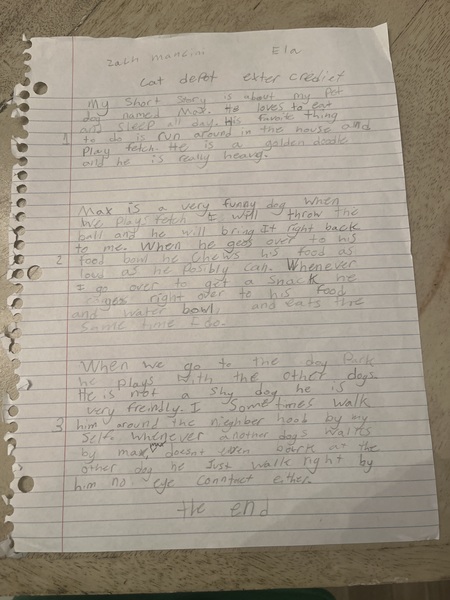 zach mancini Ela
Cat depot exter credict
My Short Story is about my Pet
dog named Max. He loves to eat
and sleep all day. His favorite thing
1 to do is run around in the house and
Play fetch. He is a golden doodle
and he is really heavy.
Max is a very funny dog when
we play fetch I will throw the
ball and he will bring It right back
to me. When he goes over to his
2 food bowl he chews his food as
loud as he posibly can. Whenever
I go over to get a snack he
goes right over to his food
and water bowl and eats the
Same time I do.
When we go to the dog Park
he plays with the other dogs.
He is not a Shy dog he is
very freindly. I Sometimes walk
3 him around the nieghber hood by my
Self. whenever another dogs walks
by max, he doesnt even bark at the
other dog he Just walk right by
him no eye conntact either.
the end